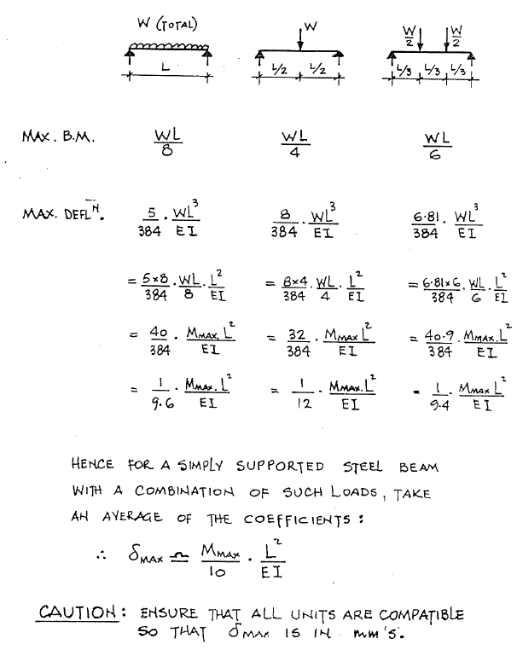 W (TOTAL) W W/2 W/2
L L/2 L/2 L/3 L/3 L/3
MAX. B.M. WL/8 WL/4 WL/6
MAX. DEFLᴺ. 5/384 . WL³/EI 8/384 . WL³/EI 6·81/384 . WL³/EI
= 5×8/384 . WL/8 . L²/EI = 8×4/384 . WL/4 . L²/EI = 6·81×6/384 . WL/6 . L²/EI
= 40/384 . MMAX.L²/EI = 32/384 . MMAX.L²/EI = 40·9/384 . MMAX.L²/EI
= 1/9.6 . MMAX.L²/EI = 1/12 . MMAX.L²/EI = 1/9.4 . MMAX.L²/EI
HENCE FOR A SIMPLY SUPPORTED STEEL BEAM
WITH A COMBINATION OF SUCH LOADS, TAKE
AN AVERAGE OF THE COEFFICIENTS :
∴ δMAX ≏ MMAX/10 . L²/EI
CAUTION : ENSURE THAT ALL UNITS ARE COMPATIBLE
SO THAT δMAX IS IN mm'S.